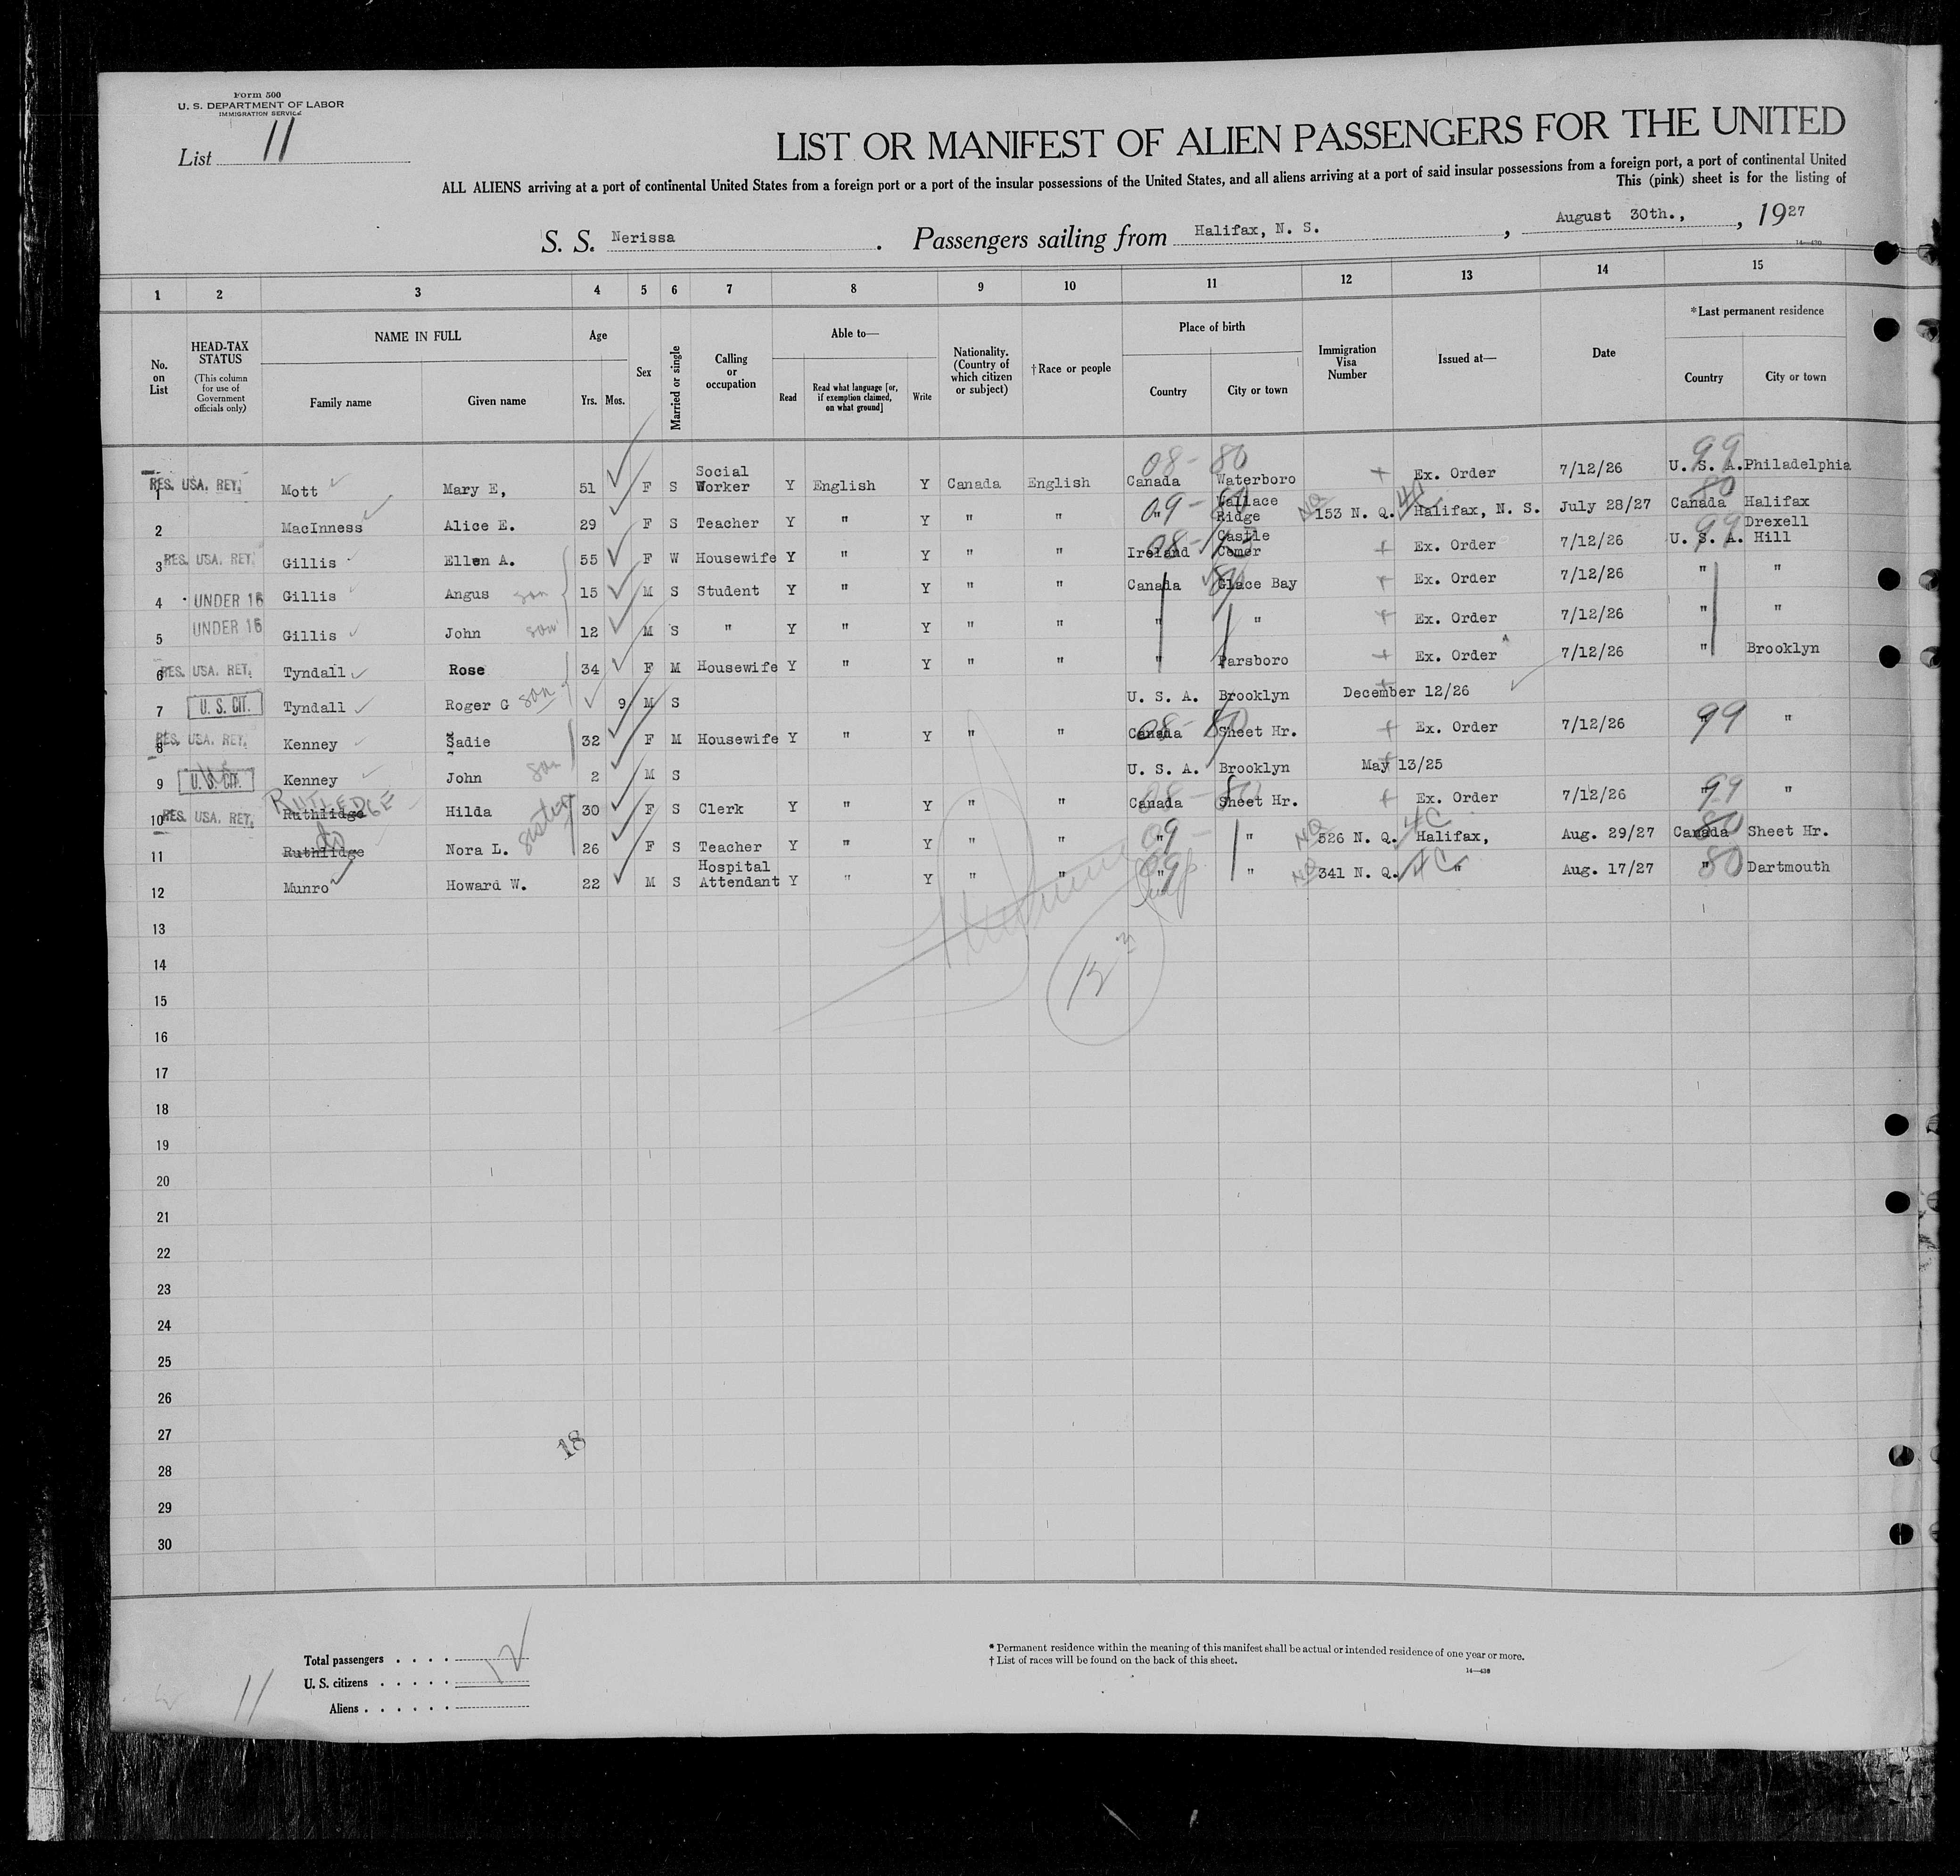 Form 500
U. S. DEPARTMENT OF LABOR
IMMIGRATION SERVICE
List 11
LIST OR MANIFEST OF ALIEN PASSENGERS FOR THE UNITED
ALL ALIENS arriving at a port of continental United States from a foreign port or a port of the insular possessions of the United States, and all aliens arriving at a port of said insular possessions from a foreign port, a port of continental United
This (pink) sheet is for the listing of
S. S. Nerissa . Passengers sailing from Halifax, N. S. , August 30th., , 1927
14—430
1 2 3 4 5 6 7 8 9 10 11 12 13 14 15
No. on List
HEAD-TAX STATUS (This column for use of Government officials only)
NAME IN FULL Family name Given name
Age Yrs. Mos.
Sex
Married or single
Calling or occupation
Able to— Read Read what language [or, if exemption claimed, on what ground] Write
Nationality. (Country of which citizen or subject)
†Race or people
Place of birth Country City or town
Immigration Visa Number
Issued at—
Date
*Last permanent residence Country City or town
1 RES. USA. RET. Mott Mary E, 51 F S Social Worker Y English Y Canada English 08-80 Canada Waterboro + Ex. Order 7/12/26 99 U. S. A. Philadelphia
2 MacInness Alice E. 29 F S Teacher Y " Y " " 09-80 " Wallace Ridge NQ 153 N. Q. Halifax, N. S. July 28/27 80 Canada Halifax
3 RES. USA. RET. Gillis Ellen A. 55 F W Housewife Y " Y " " 08- Ireland Castle Comer + Ex. Order 7/12/26 99 U. S. A. Drexell Hill
4 UNDER 16 Gillis Angus son 15 M S Student Y " Y " " Canada Glace Bay + Ex. Order 7/12/26 " "
5 UNDER 16 Gillis John son 12 M S " Y " Y " " " " + Ex. Order 7/12/26 " "
6 RES. USA. RET. Tyndall Rose 34 F M Housewife Y " Y " " " Parsboro + Ex. Order 7/12/26 " Brooklyn
7 U. S. CIT. Tyndall Roger G son 9 M S U. S. A. Brooklyn December 12/26
8 RES. USA. RET. Kenney Sadie 32 F M Housewife Y " Y " " 08-80 Canada Sheet Hr. + Ex. Order 7/12/26 99 " "
9 U. S. CIT. Kenney John son 2 M S U. S. A. Brooklyn May 13/25
10 RES. USA. RET. RUTLEDGE Ruthlidge Hilda 30 F S Clerk Y " Y " " 08-80 Canada Sheet Hr. + Ex. Order 7/12/26 99 " "
11 do Ruthlidge Nora L. sister 26 F S Teacher Y " Y " " 09- " " NQ 526 N. Q. 4C Halifax, Aug. 29/27 80 Canada Sheet Hr.
12 Munro Howard W. 22 M S Hospital Attendant Y " Y " " 09 " " NQ 341 N. Q. 4C " Aug. 17/27 80 " Dartmouth
13
14
15
16
17
18
19
20
21
22
23
24
25
26
27
28
29
30
18
Total passengers . . . . 12
U. S. citizens . . . . .
Aliens . . . . . .
11
* Permanent residence within the meaning of this manifest shall be actual or intended residence of one year or more.
† List of races will be found on the back of this sheet.
14—430